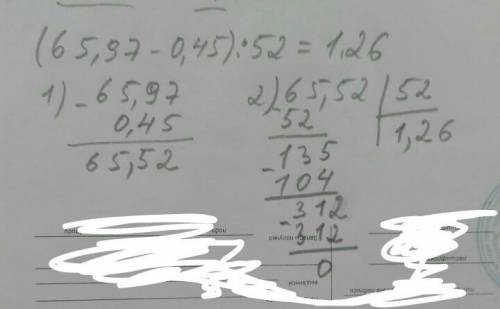 (65,97-0,45):52=1,26
1) -65,97
0,45
65,52
2) 65,52 | 52
52 1,26
-135
104
-312
-312
0